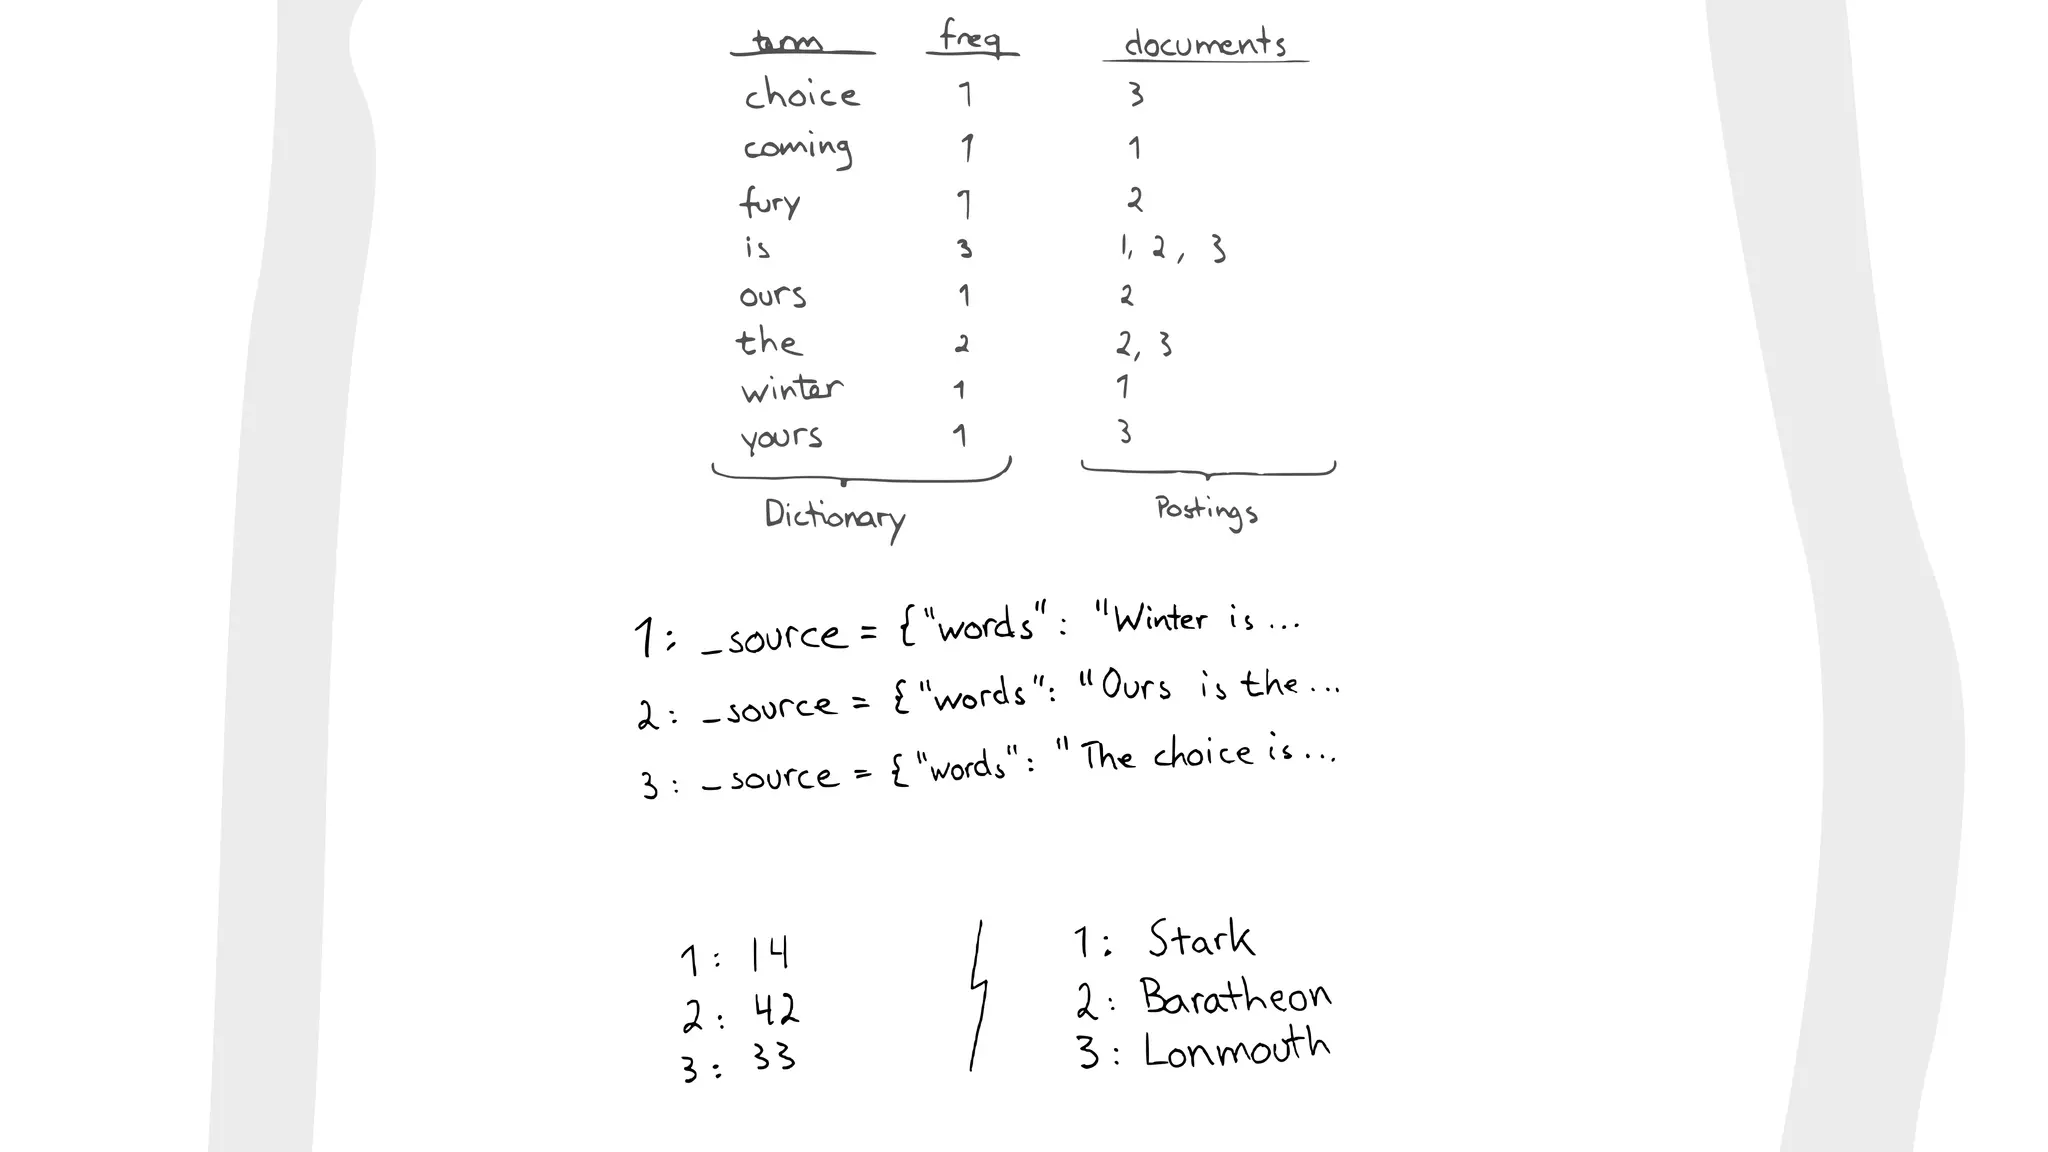 term freq documents
choice 1 3
coming 1 1
fury 1 2
is 3 1, 2, 3
ours 1 2
the 2 2, 3
winter 1 1
yours 1 3
Dictionary Postings
1: _source = {"words": "Winter is...
2: _source = {"words": "Ours is the...
3: _source = {"words": "The choice is...
1: 14 1: Stark
2: 42 2: Baratheon
3: 33 3: Lonmouth